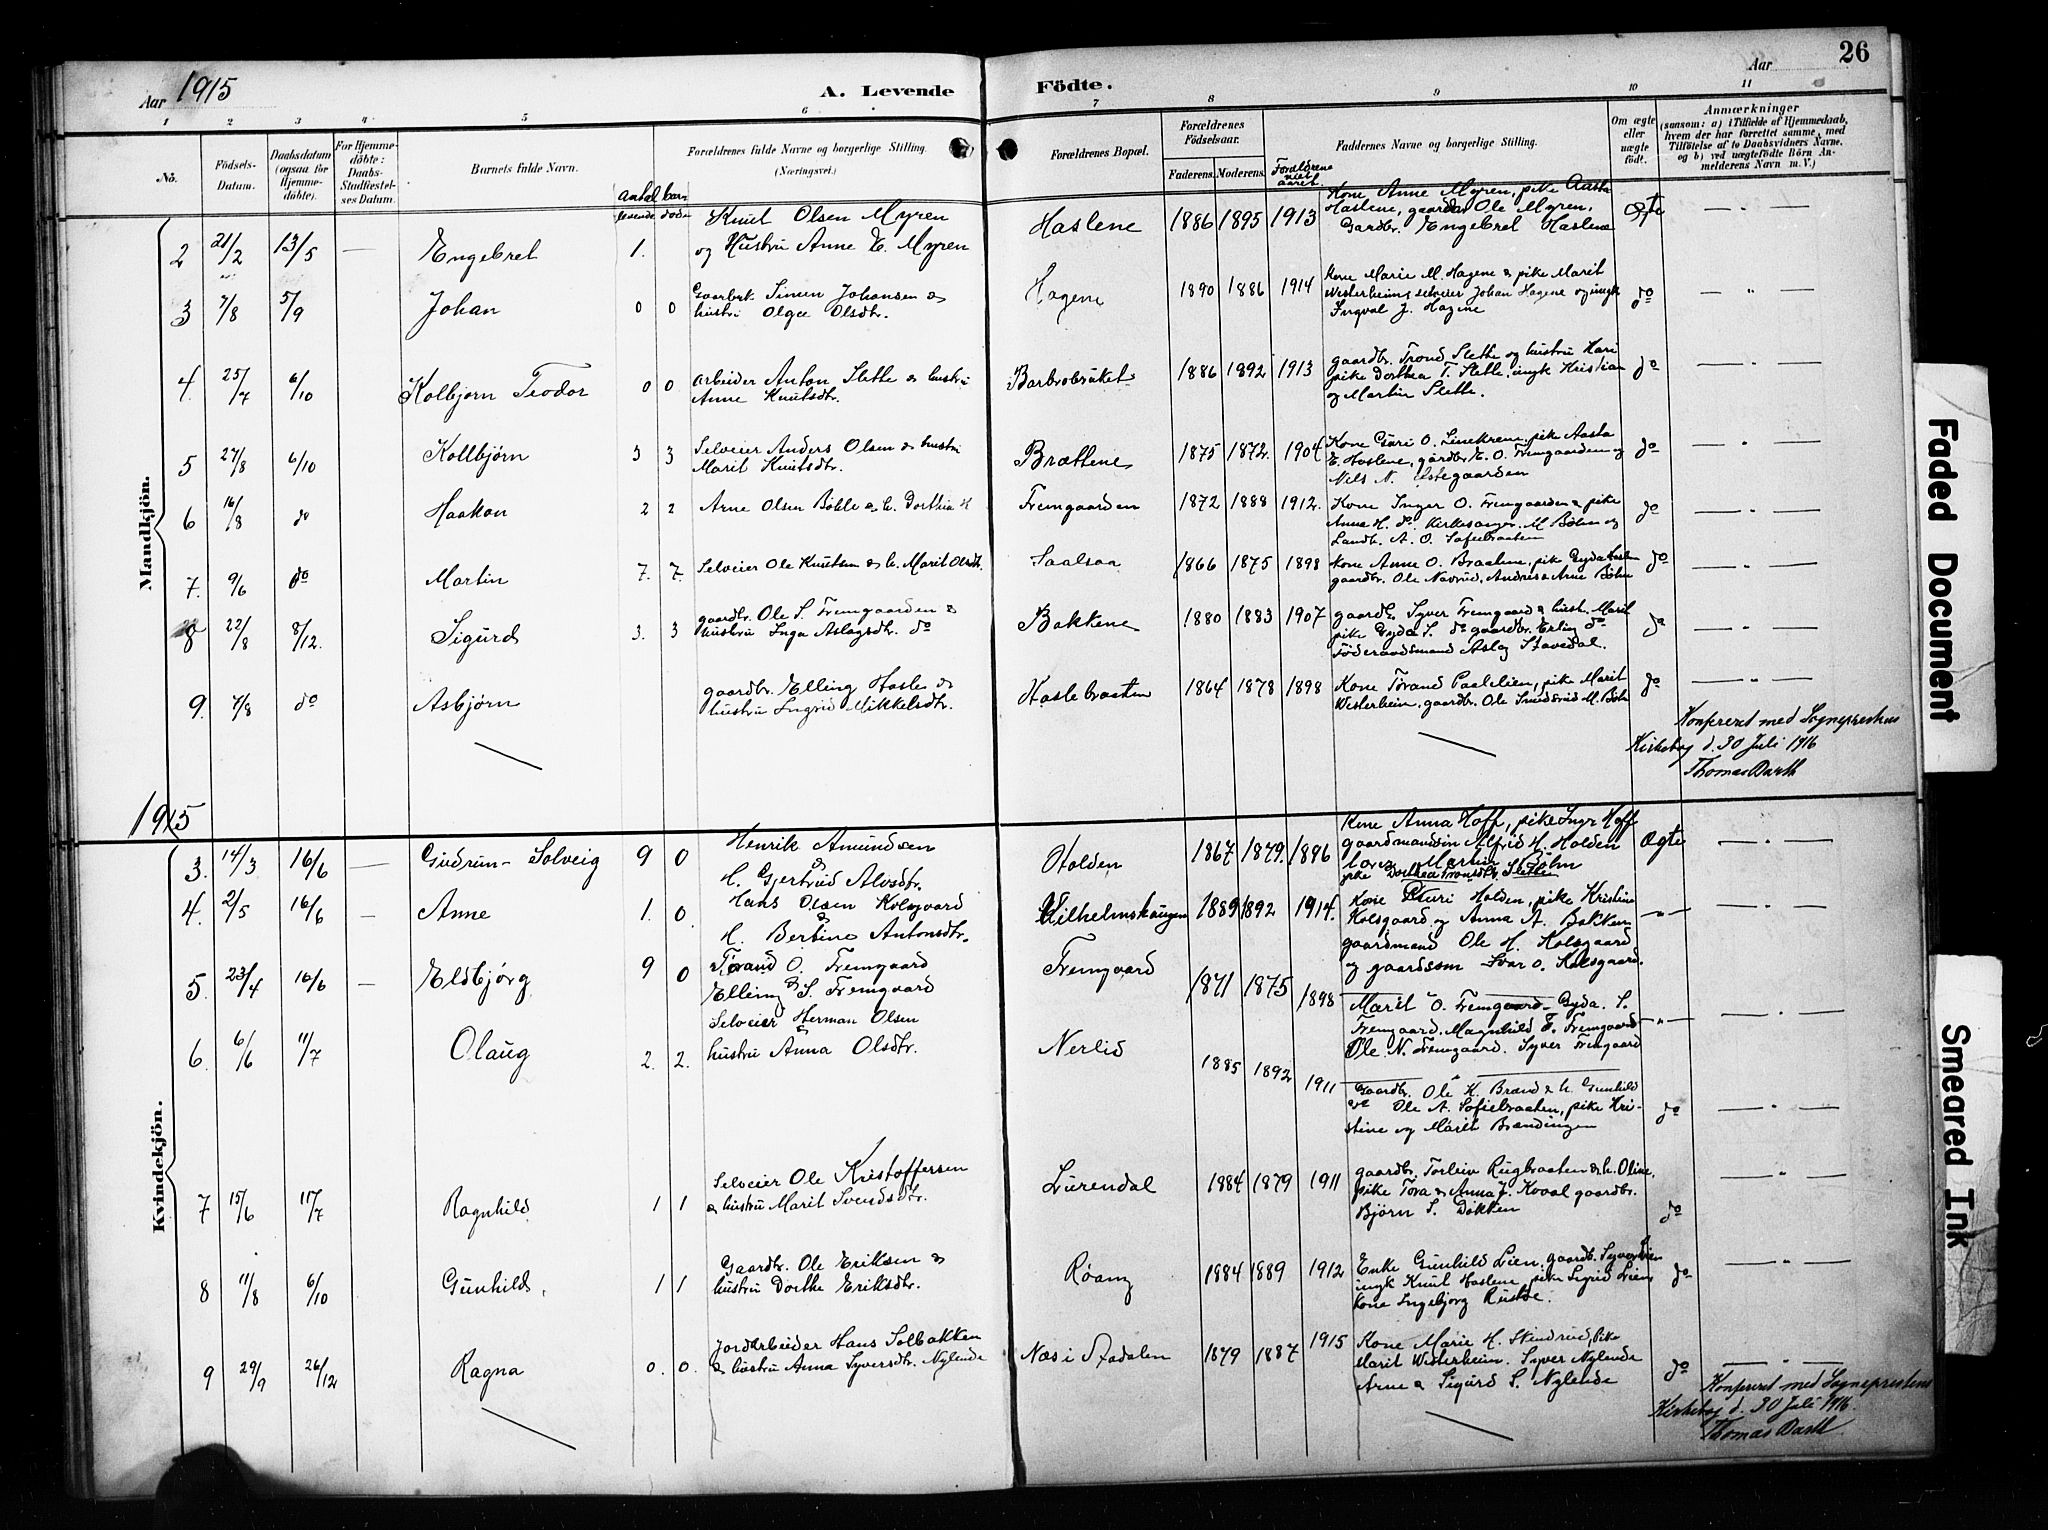 Aar 1915
A. Levende Födte.
Aar
26
1 2 3 4 5 6 7 8 9 10 11
No.
Födsels-Datum.
Daabsdatum (ogsaa for Hjemme-døbte).
For Hjemme-døbte: Daabs-Stadfæstel-ses Datum.
Barnets fulde Navn.
Antal barn
levende døde
Forældrenes fulde Navne og borgerlige Stilling.
(Næringsvei.)
Forældrenes Bopæl.
Forældrenes Födselsaar.
Faderens. Moderens.
Foreldrene viet aaret.
Faddernes Navne og borgerlige Stilling.
Om ægte eller uægte födt.
Anmærkninger
(saasom: a) i Tilfælde af Hjemmedaab, hvem der har forrettet samme, med Tilföielse af to Daabsvidners Navne. og b) ved uægtefödte Börn Anmelderens Navn m. V.)
Mandkjön.
2 21/2 13/5 — Engebret 1. Knut Olsen Myren
og Hustru Anne E. Myren
Haslene 1886 1895 1913
Kone Anne Myren, pike Aasta
Haslene, gaardbr Ole Myren,
Gardbr. Engebret Haslene
Ægte — " —
3 7/8 5/9 Johan 0 0 Gaarbr. Simen Johansen &
hustru Olga Olsdtr.
Hagene 1890 1886 1914
Kone Marie M. Hagene & pike Marit
Westerheim, selveier Johan Hagene og ungk
Ingval J. Hagene
do — " —
4. 25/7 6/10 Kolbjørn Teodor 0 0 Arbeider Anton Slette & hustru
Anne Knutsdtr.
Barbrobråket 1886 1892 1913
gaardbr. Trond Slette og hustru Kari
pike Dorthea T. Slette, ungk Kristian
og Martin Slette.
do — " —
5 27/8 6/10 Kollbjørn 3 3 Selveier Anders Olsen & hustru
Marit Knutsdtr.
Brættene 1875 1872. 1904
Kone Guri O. pike Aasta
E. Haslene, gårdbr. E. O. Fremgaarden og
Nils N.
do — " —
6 16/8 do Haakon 2 2 Arne Olsen Bøhle & h. Dorthea H
Fremgaarden 1872 1888 1912.
Kone Inger O. Fremgaarden & pike
Anna H. do. Kirkesanger M Bøhn og
Landh. A. O. Sofiebraaten
do — " —
7. 9/6 do Martin 7. 7. Selveier Ole Knutsen & h. Marit Olsdtr.
Saalsaa 1866 1875 1898
Kone Anne O. Braatene, pike Gyda
gaardbr. Ole Navrud, Andreas & Arne Bøhn
do — " —
8 22/8 8/12. Sigurd 3. 3 gaardbr. Ole S. Fremgaarden &
hustru Inga Aslagsdtr. do
Bakkene 1880 1883 1907
gaardbr. Syver Fremgaard & hust. Marit
pike Gyda S. do gaardbr. Erling do
Föderaadsmand Aslag Stavedal.
do — " —
9. 7/8 do Asbjørn gaardbr. Elling Hasle &
hustru Ingrid Mikkelsdtr.
Haslebraaten 1864 1878 1898
Kone Torand Paalslien, pike Marit
Westerheim, gaardbr. Ole Smedsrud M. Bøhn
do — " —
Konfereret med Sogneprestens
Kirkebog d. 30 Juli 1916
Thomas Barth
1915
Kvindekjön.
3. 14/3 16/6 — Gudrun Solveig 9 0 Henrik Amundsen
&
H. Gjertrud Alvsdtr.
Holden 1867 1879. 1896
Kone Anna Hoff, pike Inger Hoff
gaardmandsøn Alfred H. Holden
Martin Bøhn
pike Dorthea Tronsdtr. Sletten
Ægte — " —
4. 2/5 16/6 — Anne 1. 0 Hans Olsen Kolsgaard
&
H. Bertine Antonsdtr.
Wilhelmshaugen 1889 1892 1914.
Kone Guri Holden, pike Kristine
Kolsgaard og Anna A. Bakken
gaardmand Ole H. Kolsgaard
og gaardssøn Ivar O. Kolsgaard.
— " — — " —
5. 23/4 16/6 — Eldbjørg 9 0 Torand O. Fremgaard
&
Elling S. Fremgaard
Fremgaard 1871 1875 1898
Marit O. Fremgaard — Gyda S.
Fremgaard. Magnhild E. Fremgaard
Ole N. Fremgaard. Syver Fremgaard
— " — — " —
6. 6/6 11/7 Olaug 2. 2. Selveier Herman Olsen
&
hustru Anna Olsdtr.
Nerlid 1885 1892 1911
Gaardbr. Ole K. Brænd & h. Gunhild
Ole A. Sofiebraaten, pike Kri-
stine og Marit Brændingen
do — " —
7 15/6 11/7 Ragnhild 1 1 Selveier Ole Kristoffersen
& hustru Marit Svendsdtr.
Lurendal 1884 1879 1911
gaardbr. Torleiv Rugbraaten & h. Oline,
pike Tora & Anna J. Kvaal gaardbr.
Bjørn S. Dokken
do — " —
8 11/8 6/10 Gunhild 1 1 Gaardbr. Ole Eriksen &
hustru Dorthe Eriksdtr.
Røang 1884 1889 1912
Enke Gunhild Lien, gaardb. Syver Lien
ungk Knut Haslene, pike Sigrid Lien,
Kone Ingebjorg Rustde.
do — " —
9 29/9 26/12 Ragna 0. 0. Jordarbeider Hans Solbakken
& hustru Anna Syversdtr. Nylende
Næs i Aadalen 1879 1887 1915
Kone Marie H. Skindrud, Pike
Marit Westerheim. Syver Nylende
Arne & Sigurd S. Nylende
do — " —
Konfereret med Sogneprestens
Kirkebog d. 30 Juli 1916.
Thomas Barth
Faded Document
Smeared Ink